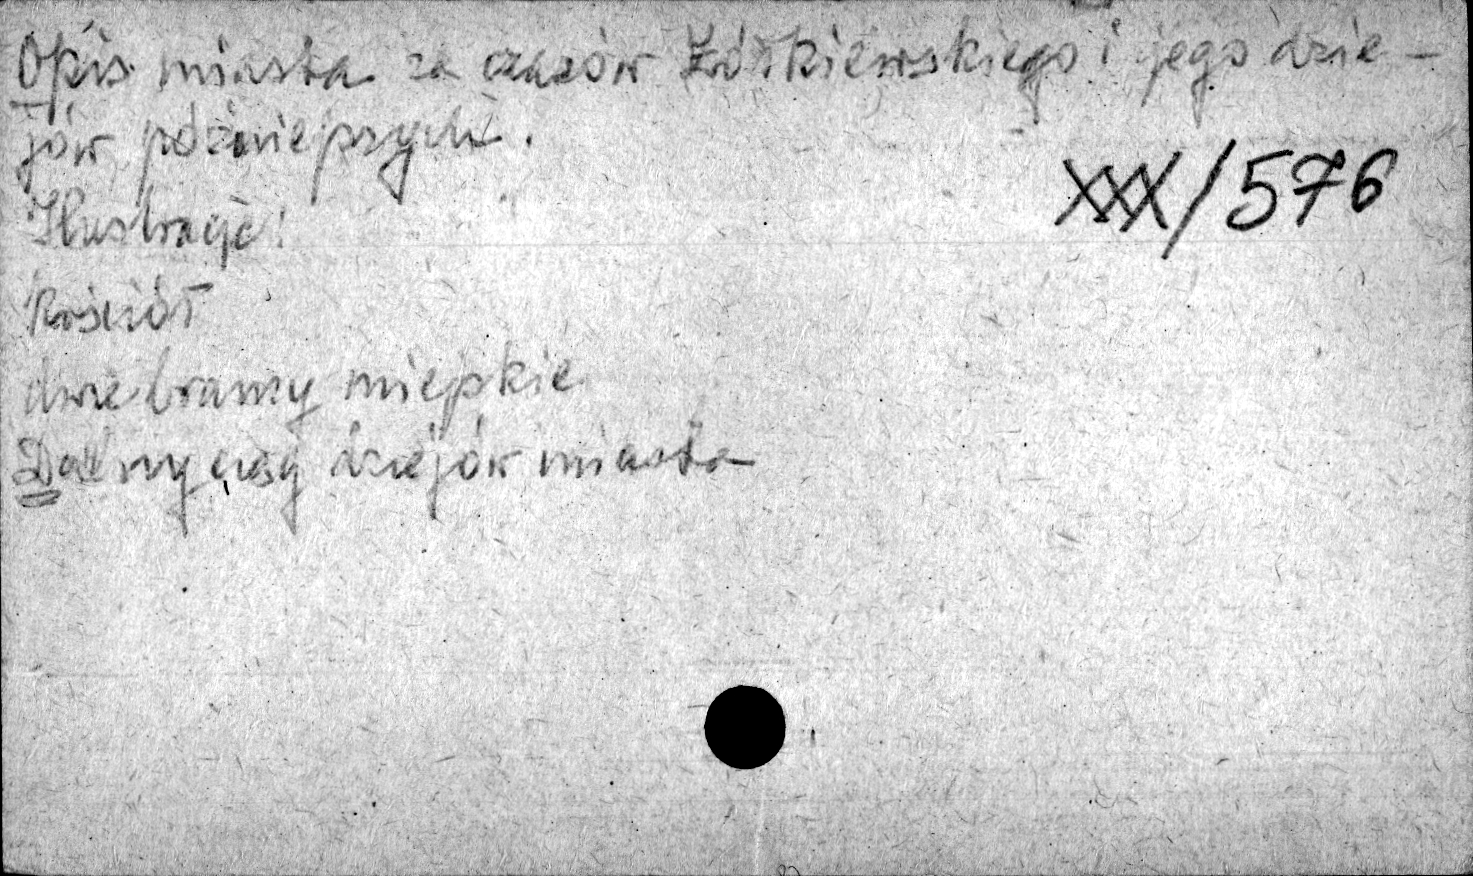 Opis miasta za czasów Żółkiewskiego i jego dzie-
jów późniejszych.
XXX/576
Ilustracje:
Kościół
dwie bramy miejskie
Dalszy ciąg dziejów miasta